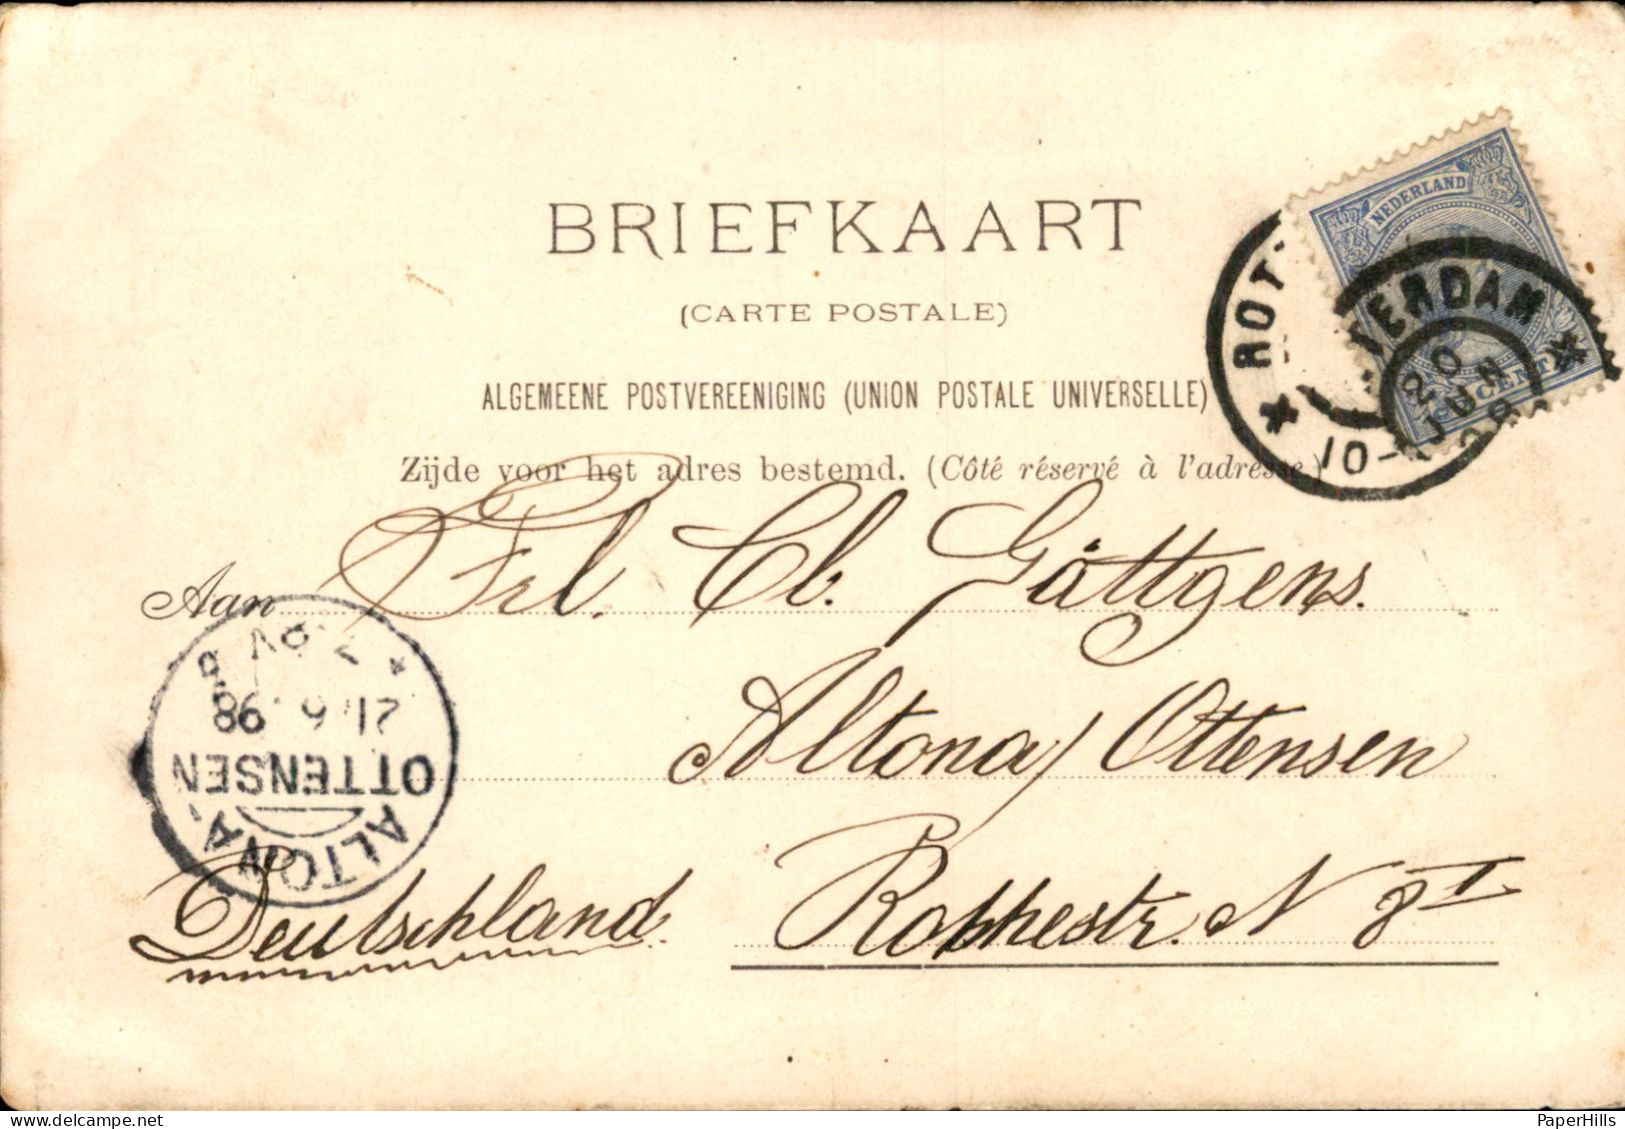 BRIEFKAART
(CARTE POSTALE)
ALGEMEENE POSTVEREENIGING (UNION POSTALE UNIVERSELLE)
Zijde voor het adres bestemd. (Côté réservé à l'adresse.)
NEDERLAND
CENT
ROTTERDAM
20 JUN 98
10-
Aan Frl. Cb. Göttgens.
Altona/Ottensen
Deutschland. N 8 I
ALTONA,
OTTENSEN
21.6.98
PaperHills